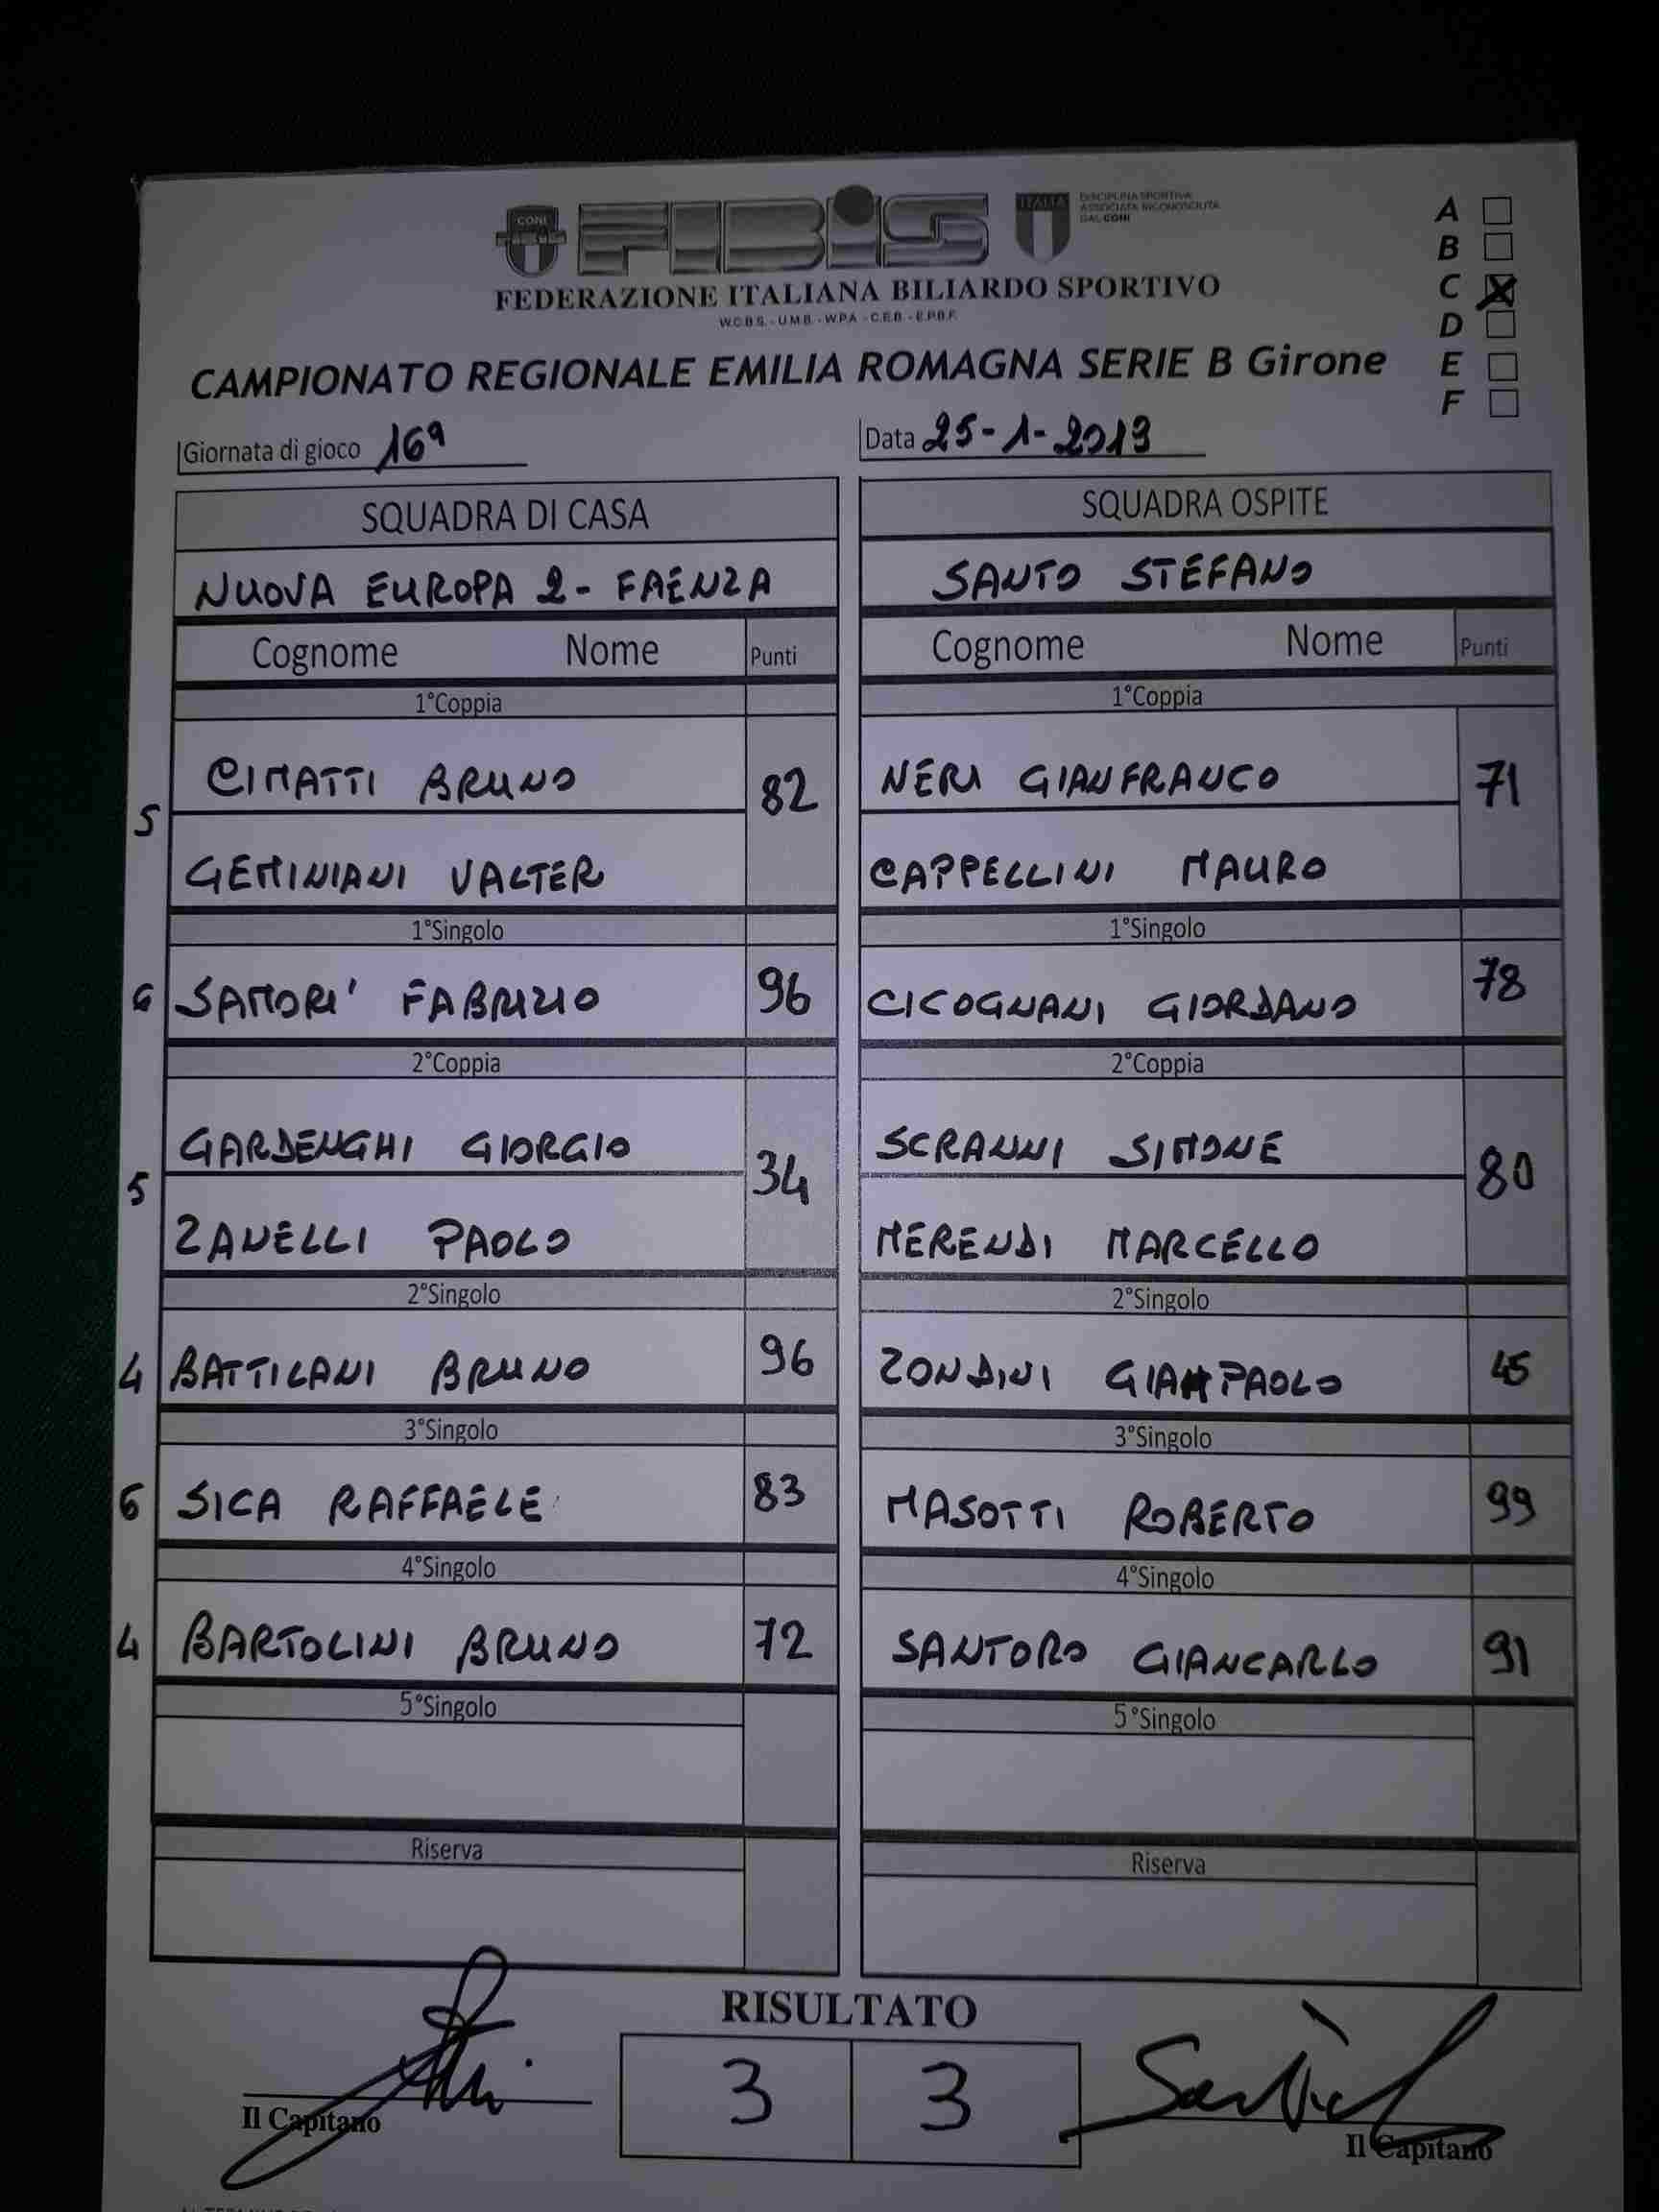 CONI FIBiS ITALIA DISCIPLINA SPORTIVA
ASSOCIATA RICONOSCIUTA
DAL CONI
FEDERAZIONE ITALIANA BILIARDO SPORTIVO
W.C.B.S. - U.M.B. - W.P.A. - C.E.B. - E.P.B.F.
A
B
C X
D
E
F
CAMPIONATO REGIONALE EMILIA ROMAGNA SERIE B Girone
Giornata di gioco 16ª Data 25-1-2019
SQUADRA DI CASA SQUADRA OSPITE
NUOVA EUROPA 2 - FAENZA SANTO STEFANO
Cognome Nome Punti Cognome Nome Punti
1°Coppia 1°Coppia
CIMATTI BRUNO 82 NERI GIANFRANCO 71
5
GEMINIANI VALTER CAPPELLINI MAURO
1°Singolo 1°Singolo
6 SAMORI' FABRIZIO 96 CICOGNANI GIORDANO 78
2°Coppia 2°Coppia
GARDENGHI GIORGIO 34 SCRANNI SIMONE 80
5
ZANELLI PAOLO MERENDI MARCELLO
2°Singolo 2°Singolo
4 BATTILANI BRUNO 96 ZONDINI GIAMPAOLO 45
3°Singolo 3°Singolo
6 SICA RAFFAELE 83 MASOTTI ROBERTO 99
4°Singolo 4°Singolo
4 BARTOLINI BRUNO 72 SANTORO GIANCARLO 91
5°Singolo 5°Singolo
Riserva Riserva
RISULTATO
3 3
Il Capitano Il Capitano